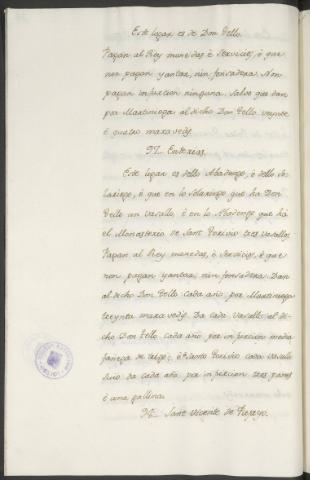 Este lugar es de Don Tello.
Pagan al Rey monedas, è servicios, è que
non pagan yantar, nin fonsadera. Non
pagan infurcion ninguna. Salvo que dan
por Martiniega al dicho Don Tello veynte
è quatro maravedis.
Este lugar es dello Abadengo, è dello So-
lariego, è que en lo Solariego que ha Don
Tello un vasallo è en lo Abadengo que ha
el Monasterio de Sant tres vasallos.
Pagan al Rey monedas, è servicios, è que
non pagan yantar, nin fonsadera. Dan
al dicho Don Tello cada año por Martiniega
treynta maravedis. Da cada vasallo al di-
cho Don Tello cada año por infurcion media
fanega de trigo, è cada vasallo
suio da cada año por infurcion tres panes
è una gallina.
Sant Vicente de